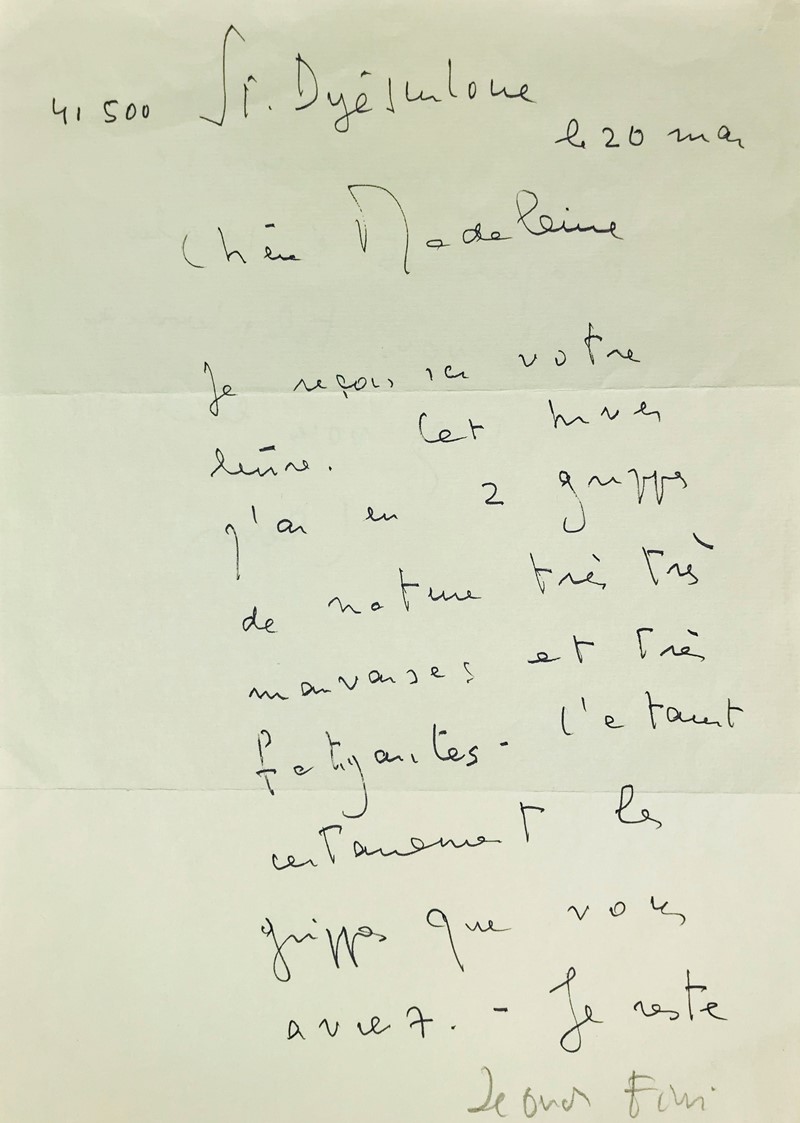 41500 St. Dyé sur loire
le 20 mai
Chère Madeleine
Je reçois ici votre
lettre. Cet hiver
j'ai eu 2 grippes
de nature très très
mauvaises et très
fatigantes - C'etaient
certainement les
grippes que vous
aviez. - Je reste
Leonor Fini